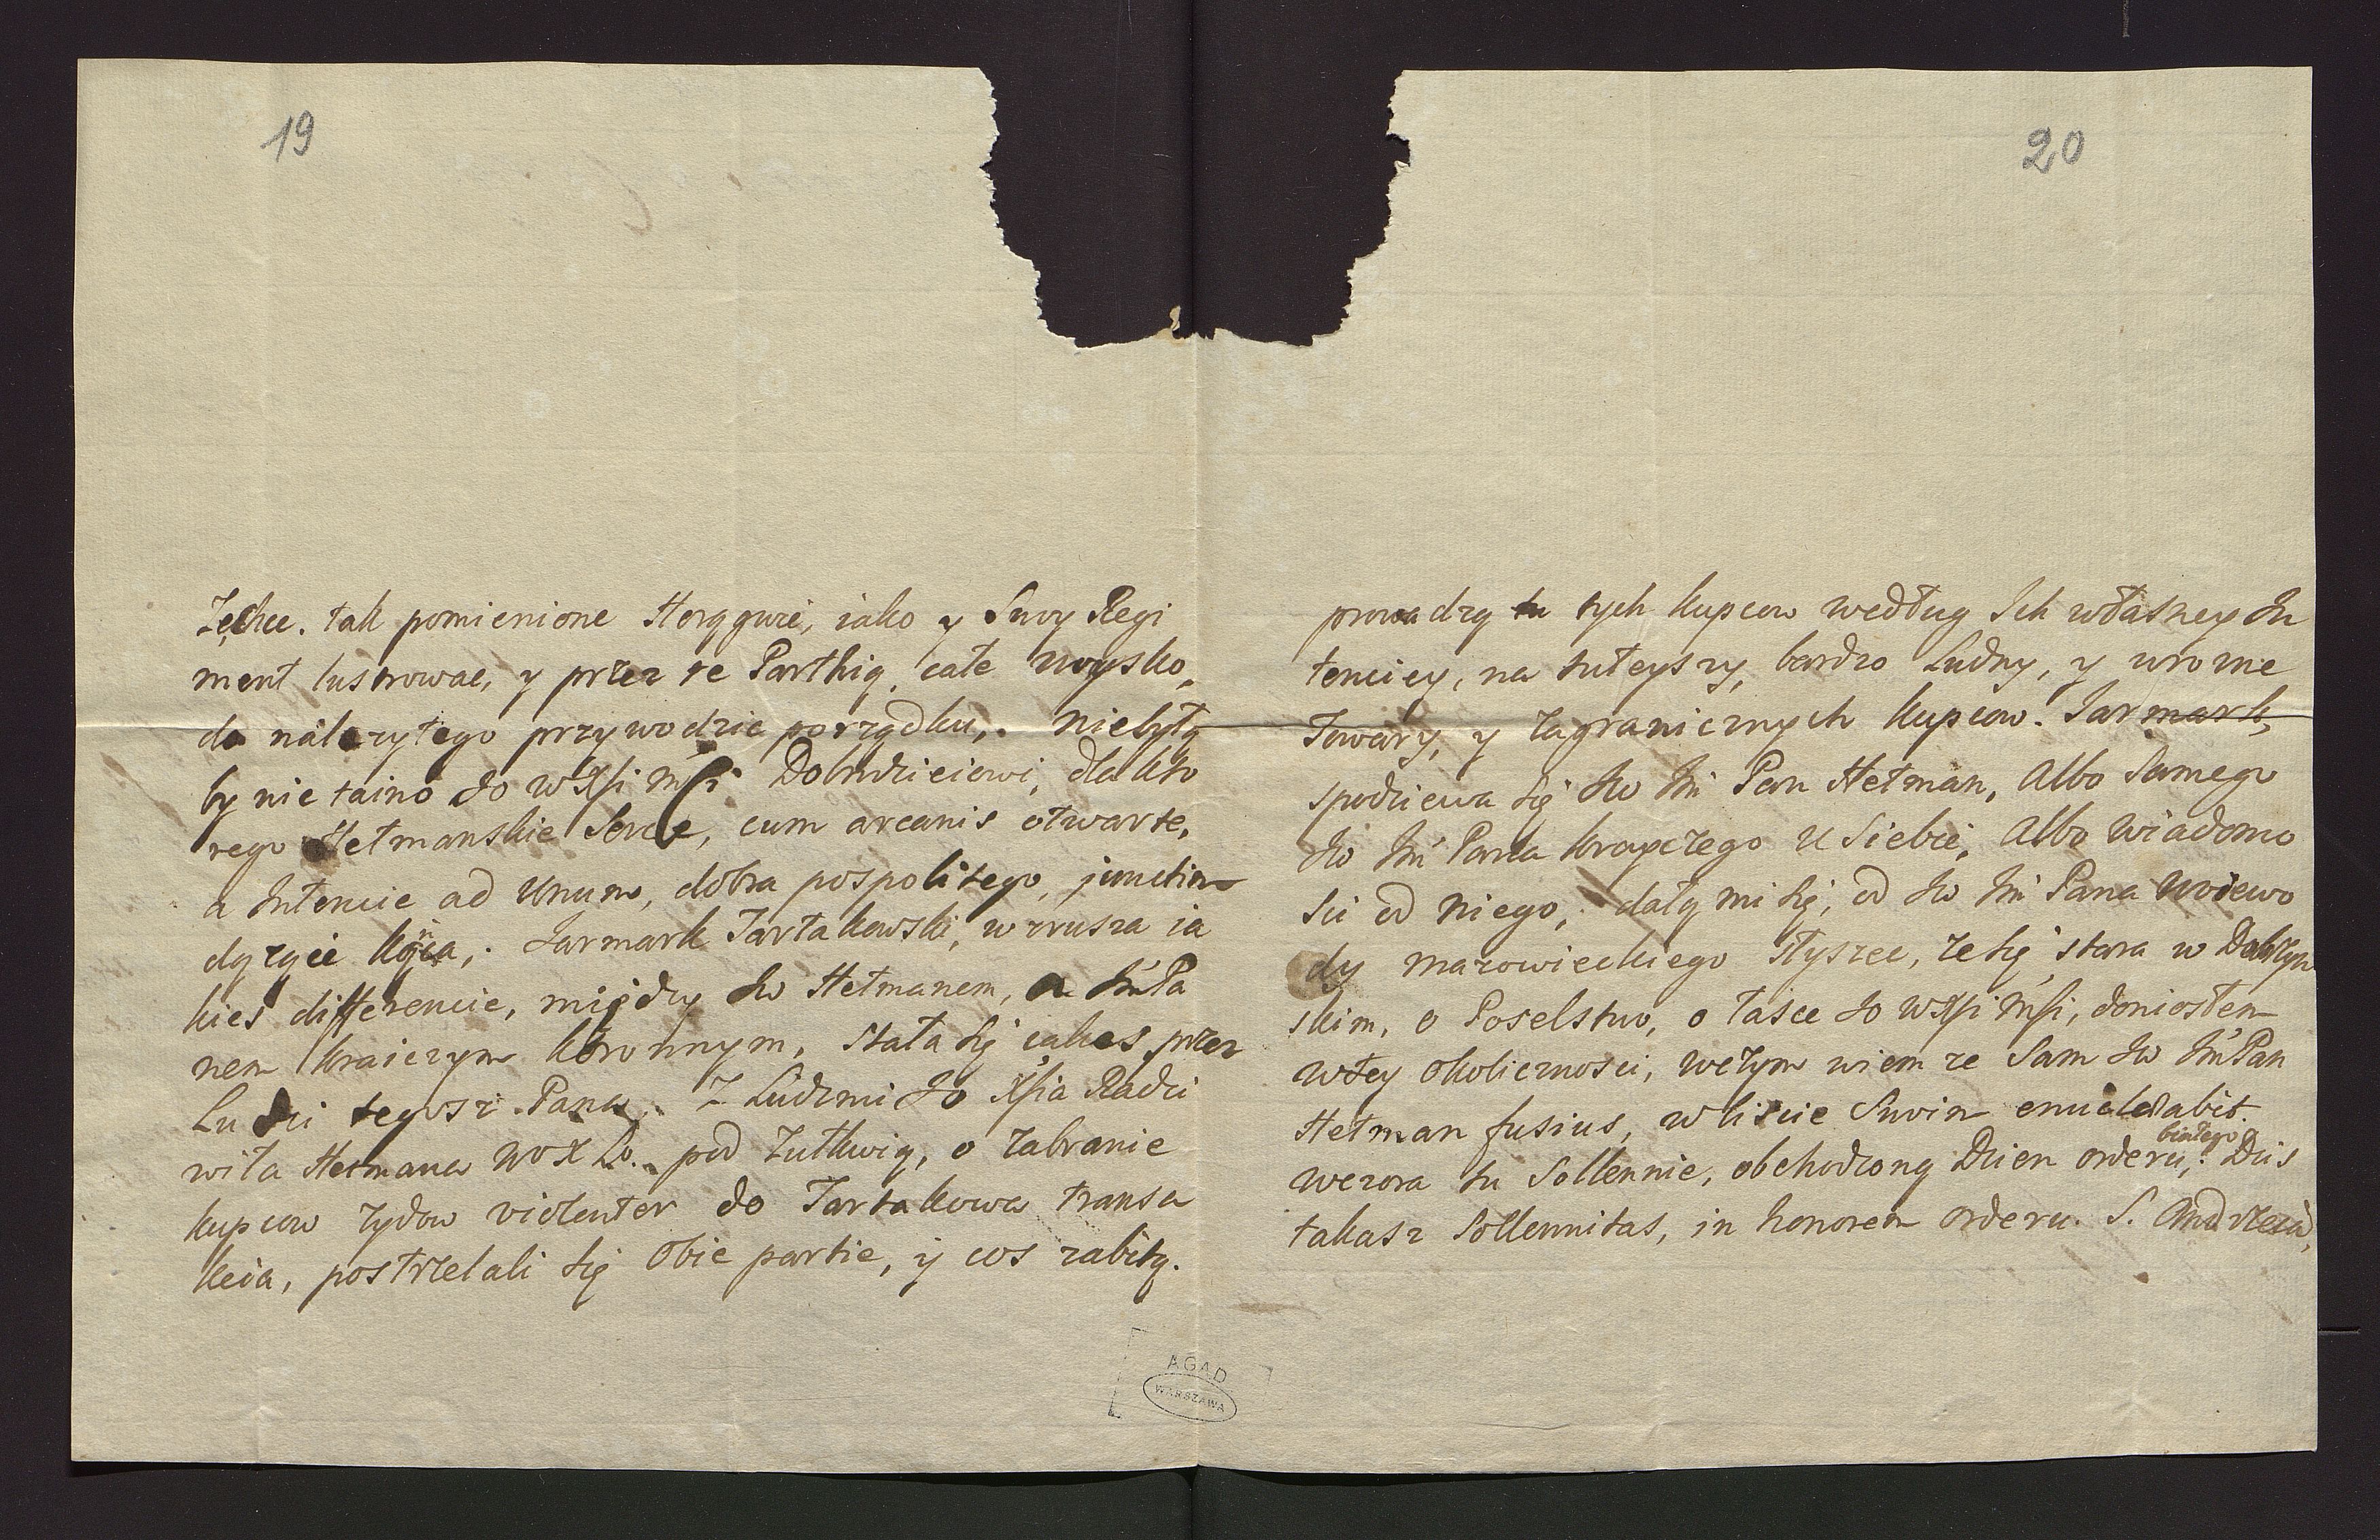 19
Zechce. tak pomienione Horągwie, iako y Swoy Regi
ment lustrowac, y przez te Parthią, całe woysko,
do nalezytego przywodzic porządku,. niebyłą
by nie taino Jo WXsi Msi Dobrodzieiowi, dla kto
rego Hetmanskie Serce, cum arcanis otwarte,
a Intencie ad Unum, dobra pospolitego, junctim
dążące,. Jarmark Tartakowski, wzrusza ia
kies differencie, między Jw Hetmanem, a Jm Pa
nem Kraiczym Koronnym, Stała się iakas przez
Ludzi tegosz Pana. Z Ludzmi Jo Xsia Radzi
wiła Hetmana W X Lo. pod Zułkwią, o zabranie
kupcow Zydow violenter do Tartakowa transa
kcia, postrzelali się obie partie, y cos zabitą.
AGAD
WARSZAWA
20
prowadzą tych kupcow według Ich własney In
tenciey, na tuteyszy, bardzo Ludny, y wrozne
Towary, y zagranicznych kupcow. Jarmark,
spodziewa się Jw Jm Pan Hetman, Albo Samego
Jw Jm Pana Krayczego U Siebie, Albo Wiadomo
sci od niego,. dały mi się, od Jw Jm Pana Woiewo
dy Mazowieckiego słyszec, ze się stara w Dobrzyn
skim, o Poselstwo, o łasce Jo WXsi Msi, doniosłem
wtey okolicznosci, wczym wiem ze Sam Jw Jm Pan
Hetman fusius, w liscie Swoim enucleabit.
wczora tu Sollennie, obchodzony Dzien orderu białego,. Dzis
takasz Sollennitas, in honorem orderu. S. Andrzeia,